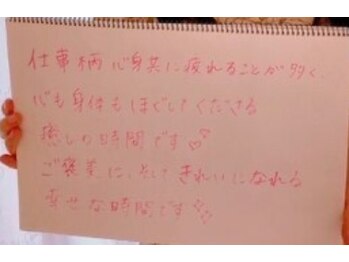 仕事柄心身共に疲れることが多く、
心も身体もほぐしてくださる
癒しの時間です♡
ご褒美に、そしてきれいになれる
幸せな時間です♡